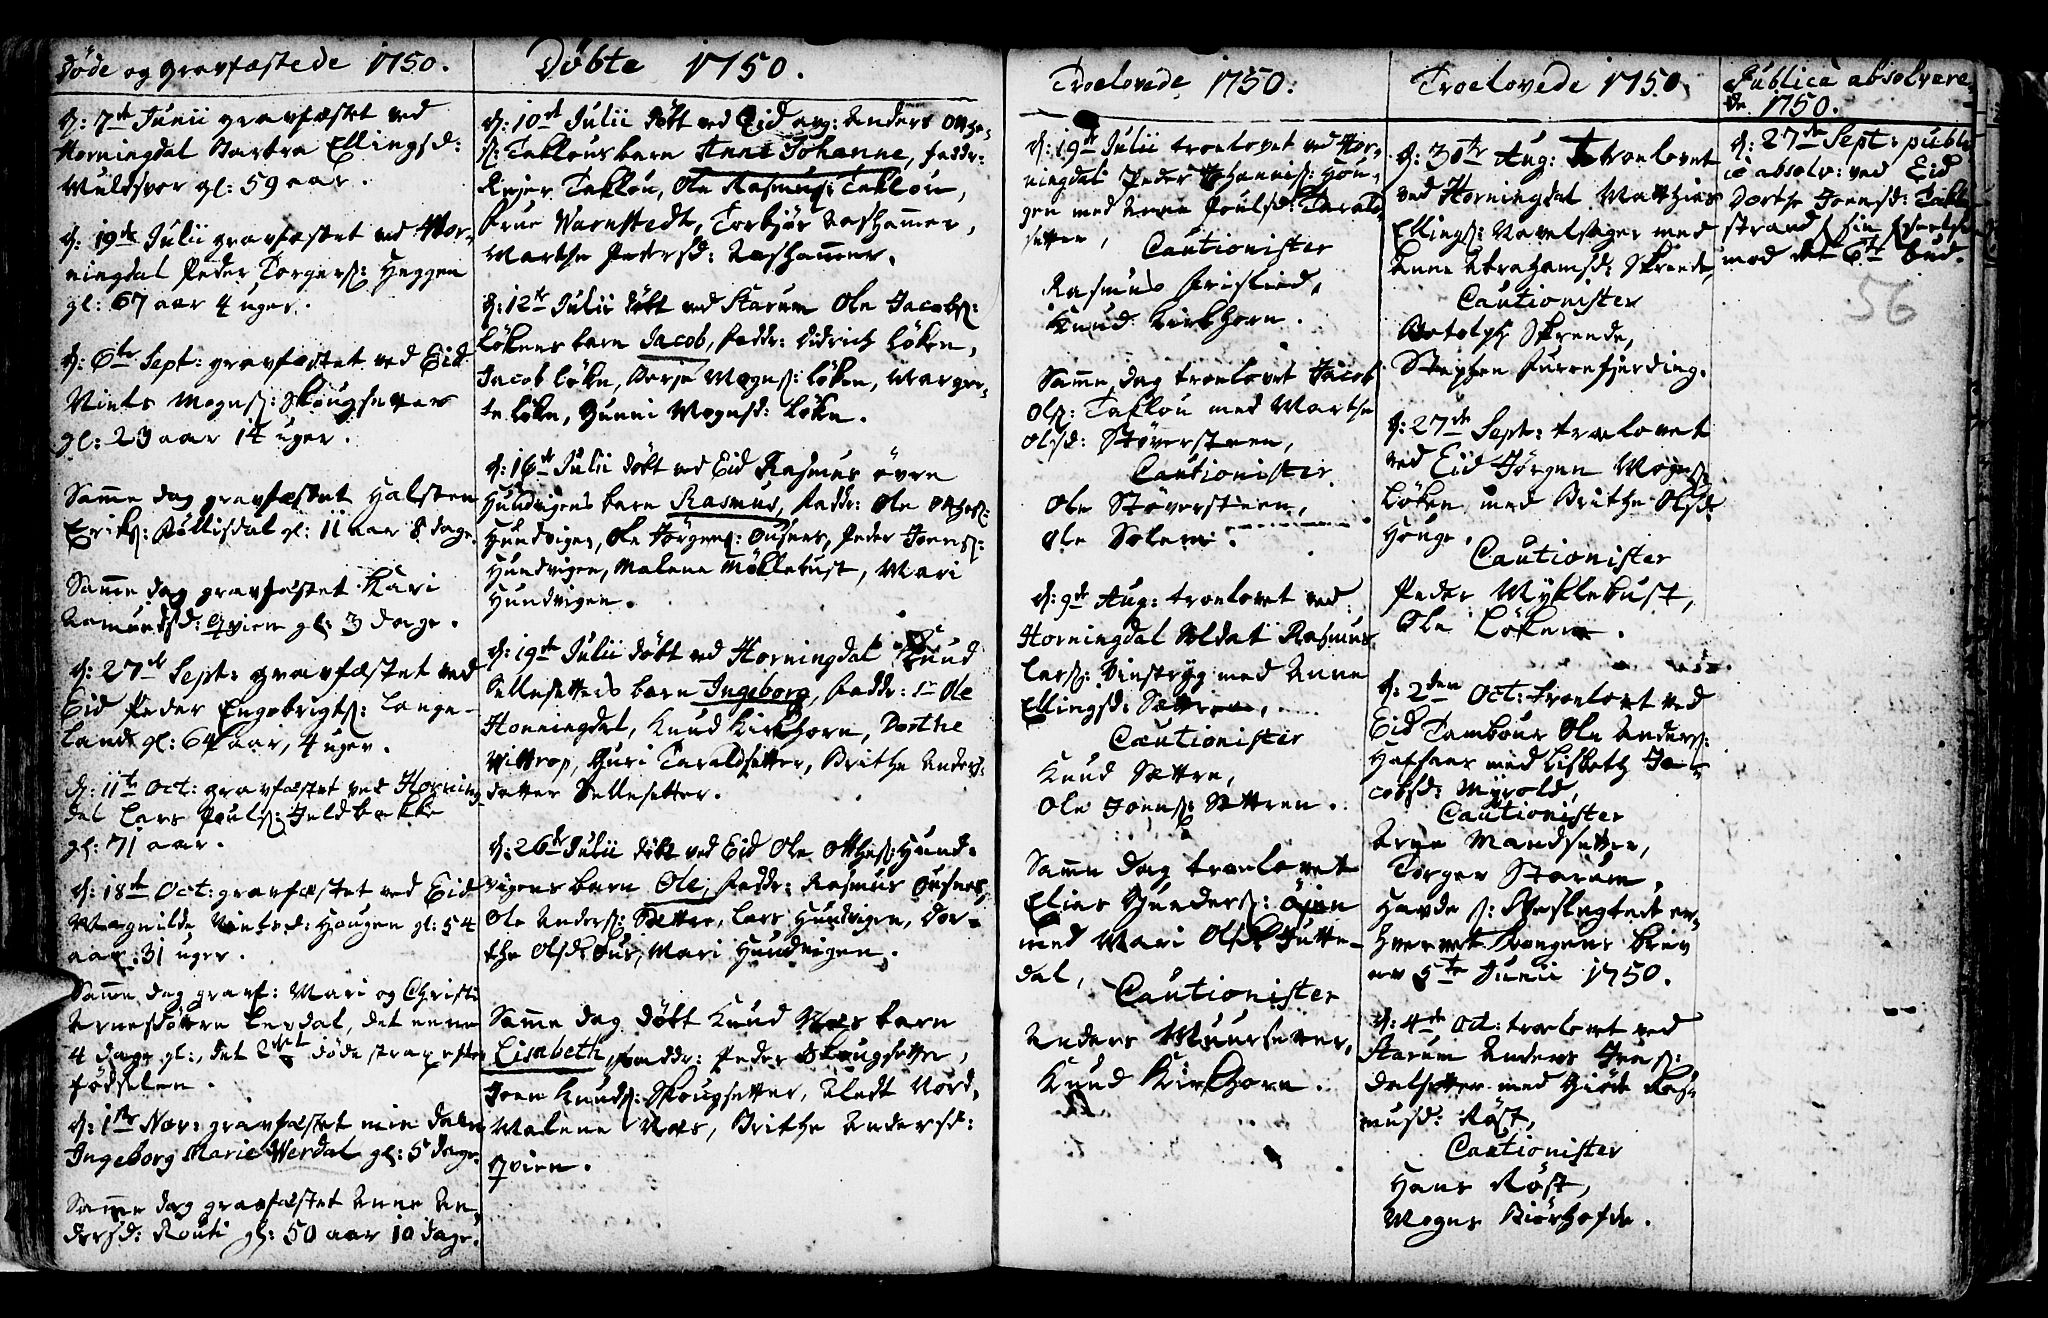 Døde og gravfæstede 1750.
d: 7de Junii gravfæstet ved
Horningdal Ellingsd:
gl: 59 aar.
d: 19de Julii gravfæstet ved Hor-
ningdal Peder Torgers: Heggen
gl: 67 aar 4 uger.
d: 6te Sept: gravfæstet ved Eid
Mogns: Skougsetter
gl: 23 aar 14 uger.
Samme dag gravfæstet Halsten
Eriks: gl: 11 aar 8 dage.
Samme dag gravfæstet Kari
Aamundsd: Qvien gl: 3 dage.
d: 27de Sept: gravfæstet ved
Eid Peder Engebrigts: Lange-
land gl: 64 aar, 4 uger.
d: 11te Oct: gravfæstet ved Horning
dal Lars Pouls:
gl: 71 aar.
d: 18de Oct: gravfæstet ved Eid
Magnilde Haugen gl: 54
aar 31 uger.
Samme dag gravf: Mari og Christi
Arnesdøttre det eene
4 dage gl:, det 2det døde strax efter
fødselen.
d: 1ste Nov: gravfæstet min
Ingeborg Marie Werdal gl: 5 dage.
Samme dag gravfæstet Anne An-
dersd: Routi gl: 50 aar 10 dage.
Døbte 1750.
d: 10de Julii døbt ved Eid Anders Otthe-
s: Taklous barn Anne Johanne, faddr:
Rejer Taklou, Ole Rasmus: Taklou,
frue Warnstedt, Torbjør Nashammer,
Marthe Pedersd: Nashammer.
d: 12te Julii døbt ved Starum Ole Jacobs:
Løkens barn Jacob, faddr: Didrich Løken,
Jacob Løken, Mogns: Løken, Margre-
te Løken, Gunni Mognsd: Løken.
d: 16de Julii døbt ved Eid Rasmus øvre
Hundvigens barn Rasmus, faddr: Ole Otthes:
Hundvigen, Ole Jørgens: Ousnes, Peder Joens:
Hundvigen, Malene Møklebust, Mari
Hundvigen.
d: 19de Julii døbt ved Horningdal Knud
Sellesetters barn Ingeborg, faddr: Sr Ole
Honningdal, Knud Kirkhorn, Dorthe
Wittrop, Guri Taraldsetter, Brithe Anders-
datter Sellesetter.
d: 26de Julii døbt ved Eid Ole Otthes: Hund-
vigens barn Ole, faddr: Rasmus Ousnes,
Ole Anders: Sætter, Lars Hundvigen, Dor-
the Olsd: Ous, Mari Hundvigen.
Samme dag døbt Knud Næs barn
Lisabeth, faddr: Peder Skougsetter,
Joen Knuds: Skougsetter, Nord,
Malene Næs, Brithe Andersd:
Qvien.
Troelovede 1750.
d: 19de Julii troelovet ved Hor-
ningdal Peder Johannes: Hou-
gen med Anne Poulsd: Tarald-
setter,
Cautionister
Rasmus
Knud Kirkhorn.
Samme dag troelovet Jacob
Ols: Taklou med Marthe
Olsd: Støversteen,
Cautionister
Ole Støversteen,
Ole Solem.
d: 9de Aug: troelovet ved
Horningdal Soldat Rasmus
Lars: med Anne
Ellingsd: Sættren,
Cautionister
Knud Sættre,
Ole Joens: Sættren.
Samme dag troelovet
Elias Gunders: Øjen
med Mari Olsd:
dal,
Cautionister
Anders
Knud Kirkhorn.
Troelovede 1750.
d: 30te Aug: troelovet
ved Horningdal Matthias
Ellings: Navelsager med
Anne Abrahamsd: Skrende,
Cautionister
Botolph Skrende,
Stephen Furrefjerding.
d: 27de Sept: troelovet
ved Eiid Jørgen Mogns:
Løken med Brithe Olsd:
Houge,
Cautionister
Peder Myklebust,
Ole Løken.
d: 2den Oct: troelovet ved
Eid Tambour Ole Anders:
med Lisbeth Ja-
cobsd: Myrold,
Cautionister
Arne Mandsetter,
Torger Starum,
Havde er-
hvervet Kongens brev
av 5te Junii 1750.
d: 4de Oct: troelovet ved
Starum Anders
med Giøde Ras-
musd: Røst,
Cautionister
Hans Røst,
Mogns
Publicè absolvere-
de 1750.
d: 27de Sept: publi-
cè absolv: ved Eid
Dorthe Joensd:
strand
mod det 6te bud.
56